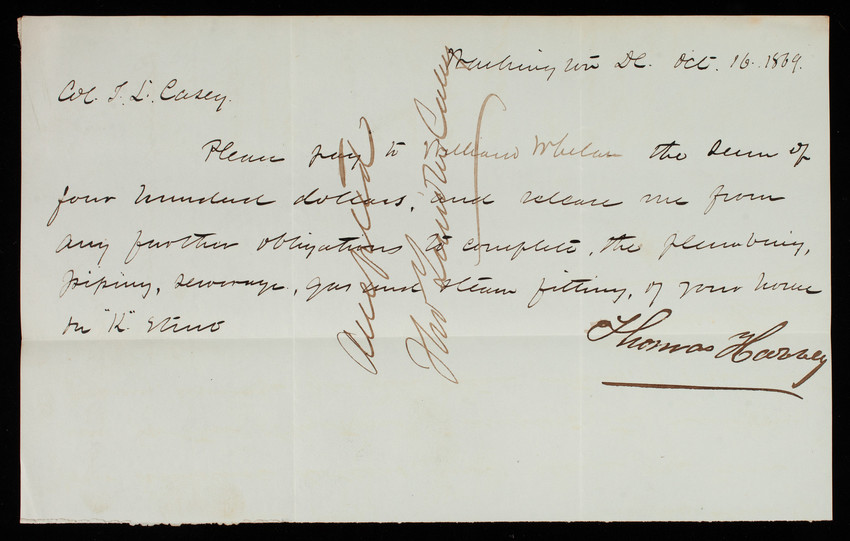 Washington DC. Oct. 16. 1869.
Col. T. L. Casey.
Please pay to William Whelan the sum of
four hundred dollars, and release me from
any further obligations to complete, the plumbing,
piping, sewerage, gas and steam fitting, of your house
on "K" Street
Thomas Harvey
Accepted
Tho Lincoln Casey